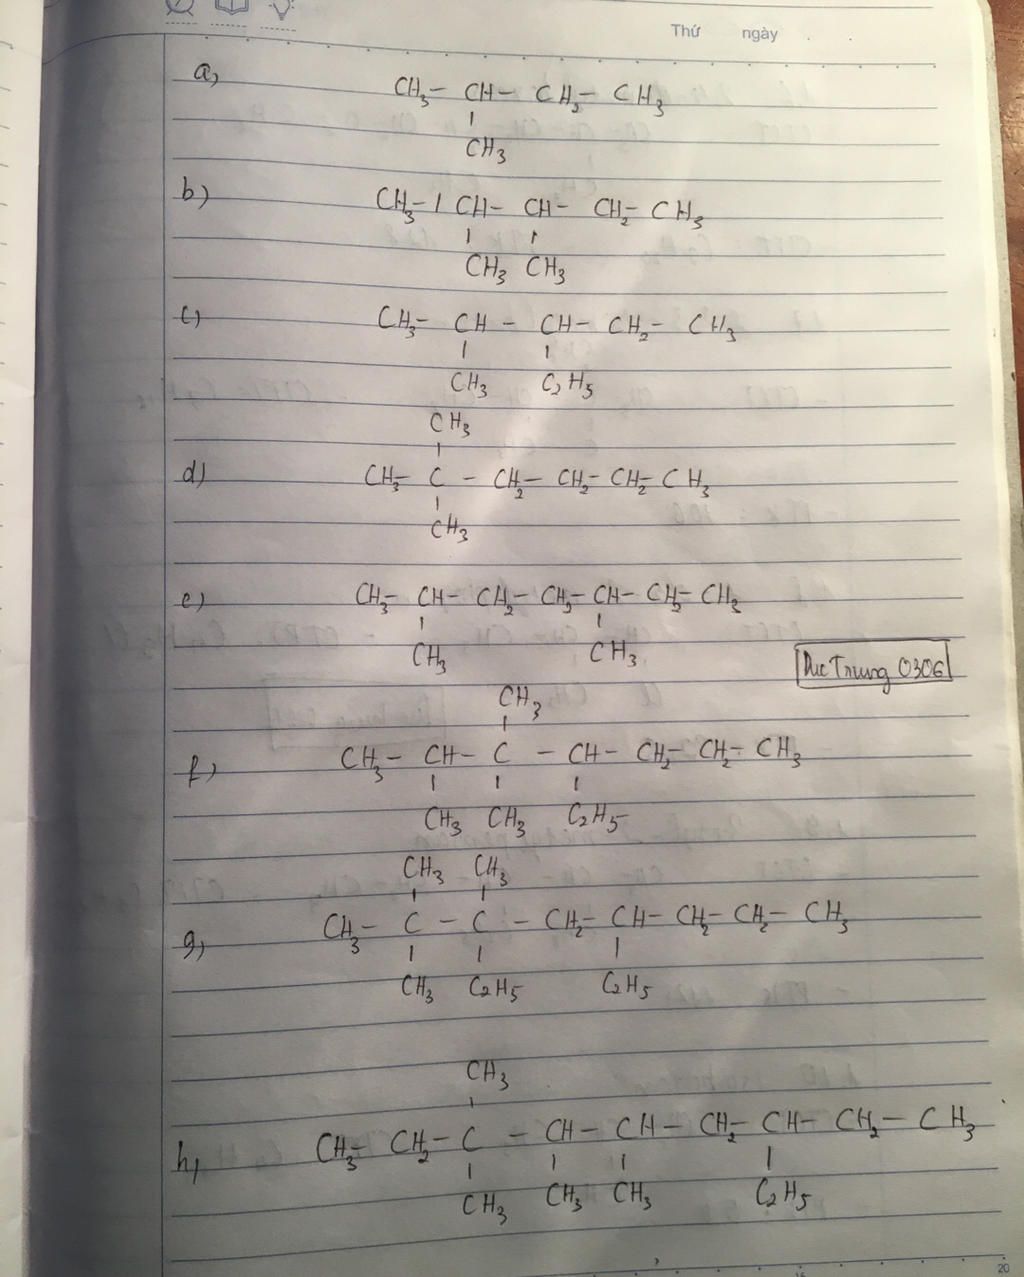 Thứ ngày
a,
CH3 – CH – CH2 – CH3
CH3
b)
CH3 – / CH – CH – CH2 – CH3
CH3 CH3
c)
CH3 – CH – CH – CH2 – CH3
CH3 C2H5
CH3
d)
CH3 – C – CH2 – CH2 – CH2 – CH3
CH3
e)
CH3 – CH – CH2 – CH2 – CH – CH2 – CH3
CH3 CH3
Duc Trung 0306
CH3
f)
CH3 – CH – C – CH – CH2 – CH2 – CH3
CH3 CH3 C2H5
CH3 CH3
g)
CH3 – C – C – CH2 – CH – CH2 – CH2 – CH3
CH3 C2H5 C2H5
CH3
h,
CH3 – CH2 – C – CH – CH – CH2 – CH – CH2 – CH3
CH3 CH3 CH3 C2H5
15 20